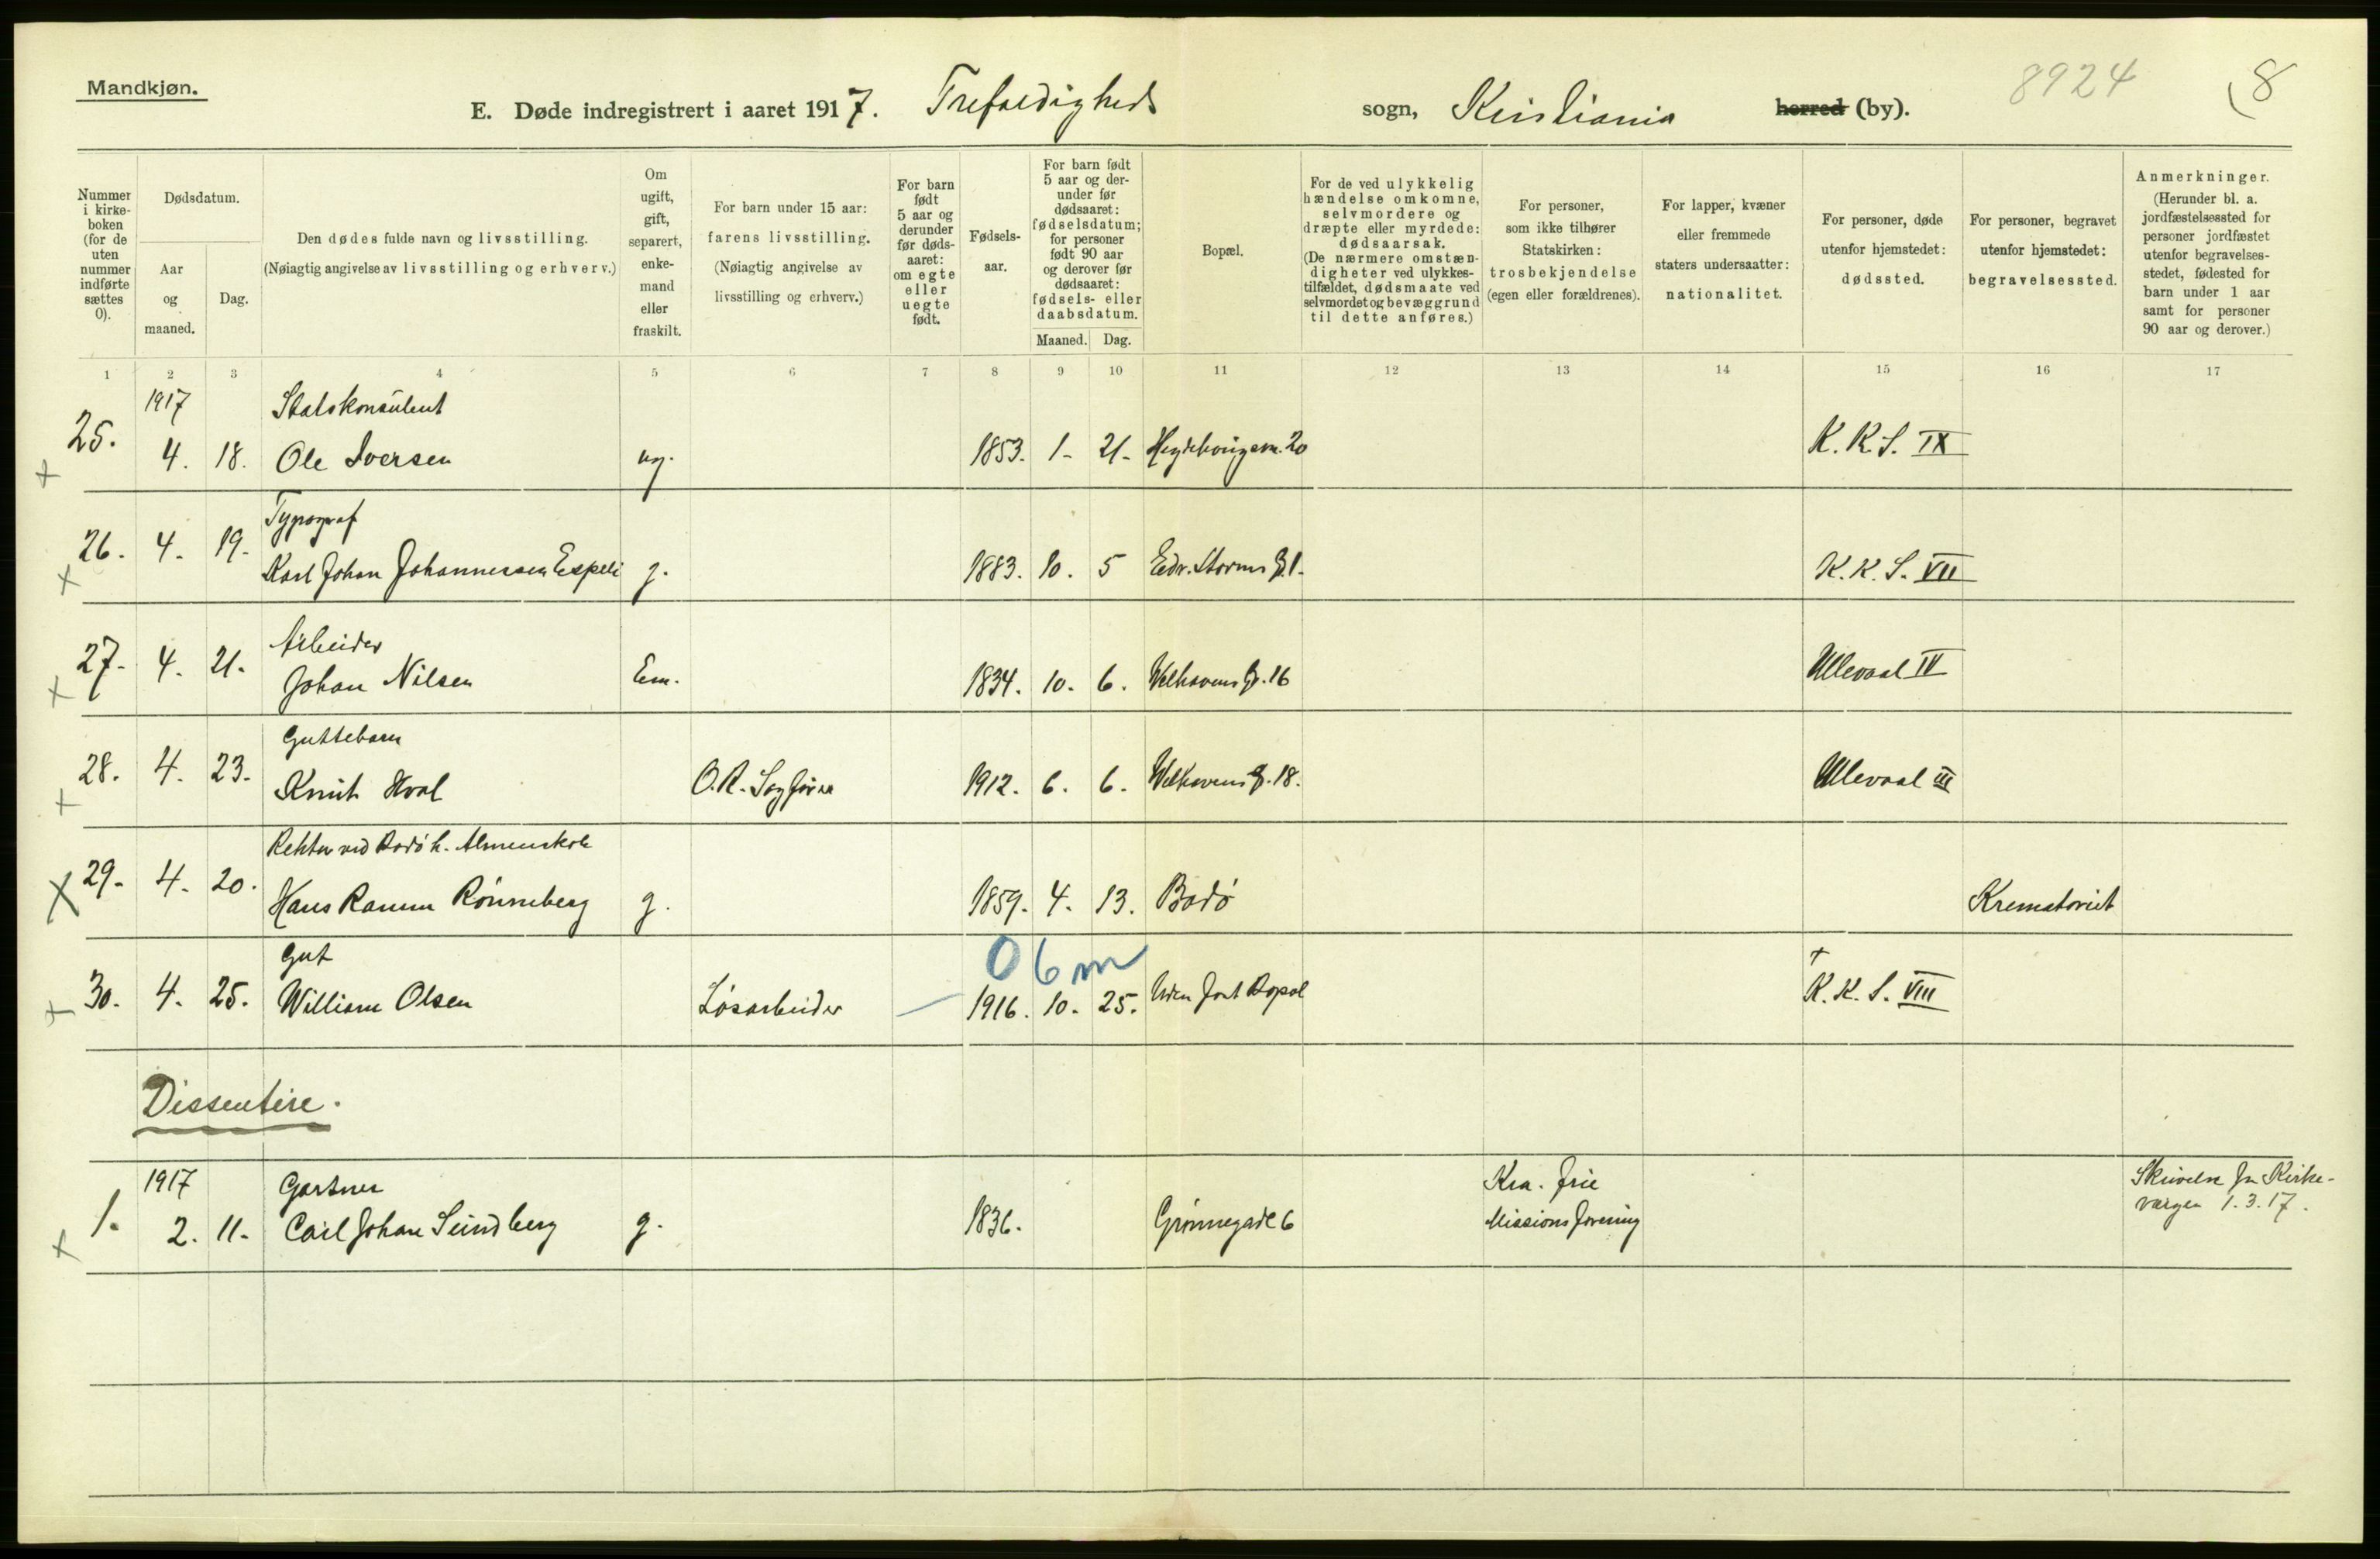 Mandkjøn.
8924
8
E. Døde indregistrert i aaret 1917. Trefoldigheds sogn, Kristiania herred (by).
Nummer i kirke-boken (for de uten nummer indførte sættes 0).
Dødsdatum.
Aar og maaned.
Dag.
Den dødes fulde navn og livsstilling.
(Nøiagtig angivelse av livsstilling og erhverv.)
Om ugift, gift, separert, enke-mand eller fraskilt.
For barn under 15 aar:
farens livsstilling.
(Nøiagtig angivelse av livsstilling og erhverv.)
For barn født 5 aar og derunder før døds-aaret: om egte eller uegte født.
Fødsels-aar.
For barn født 5 aar og der-under før dødsaaret: fødselsdatum; for personer født 90 aar og derover før dødsaaret: fødsels- eller daabsdatum.
Maaned. Dag.
Bopæl.
For de ved ulykkelig hændelse omkomne, selvmordere og dræpte eller myrdede: dødsaarsak.
(De nærmere omstæn-digheter ved ulykkes-tilfældet, dødsmaate ved selvmordet og bevæggrund til dette anføres.)
For personer, som ikke tilhører Statskirken: trosbekjendelse (egen eller forældrenes).
For lapper, kvæner eller fremmede staters undersaatter: nationalitet.
For personer, døde utenfor hjemstedet: dødssted.
For personer, begravet utenfor hjemstedet: begravelsessted.
Anmerkninger.
(Herunder bl. a. jordfæstelsessted for personer jordfæstet utenfor begravelses-stedet, fødested for barn under 1 aar samt for personer 90 aar og derover.)
1 2 3 4 5 6 7 8 9 10 11 12 13 14 15 16 17
1917 Statskonsulent
25. 4. 18. Ole Iversen ug. 1853. 1- 21- Hegdehaugsv. 20 K. K. S. IX
Typograf
26. 4. 19. Karl Johan Johannessen Espeli g. 1883. 10. 5 Edv. Storms g. 1. K. K. S. VII
Arbeider
27. 4. 21. Johan Nilsen Em. 1834. 10. 6. Welhavens g. 16 Ullevaal IV
Guttebarn
28. 4. 23. Knut Hval O.R. Sagfører 1912. 6. 6. Welhavens g. 18. Ullevaal III
Rektor ved Bodø h. Almenskole
29. 4. 20. Hans Ramm Rönneberg g. 1859. 4. 13. Bodö Krematoriet
0 6 m
Gut
30. 4. 25. William Olsen Løsarbeider — 1916. 10. 25. Uden fast Bopæl K. K. S. VIII
Dissentere.
1917 Gartner Kra. frie Skrivelse fra Kirke-
1. 2. 11. Carl Johan Sundberg g. 1836. Grønnegade 6 Missionsforening vergen 1.3.17.